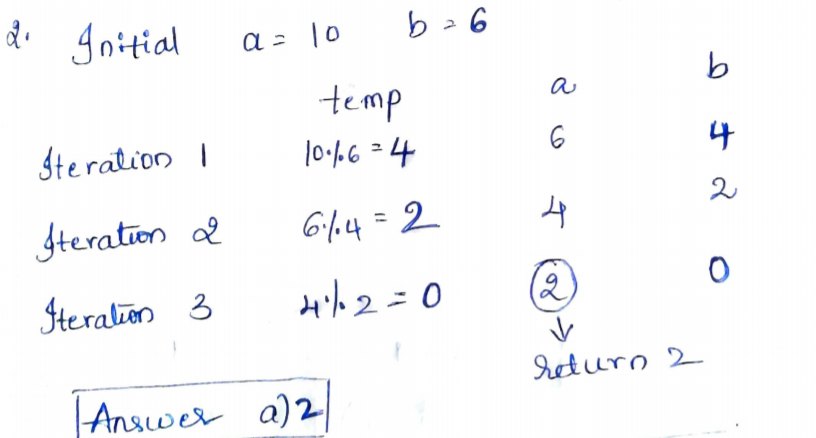 2. Initial a = 10 b = 6
temp a b
Iteration 1 10%6 = 4 6 4
Iteration 2 6%4 = 2 4 2
Iteration 3 4%2 = 0 2 0
↓
return 2
Answer a) 2